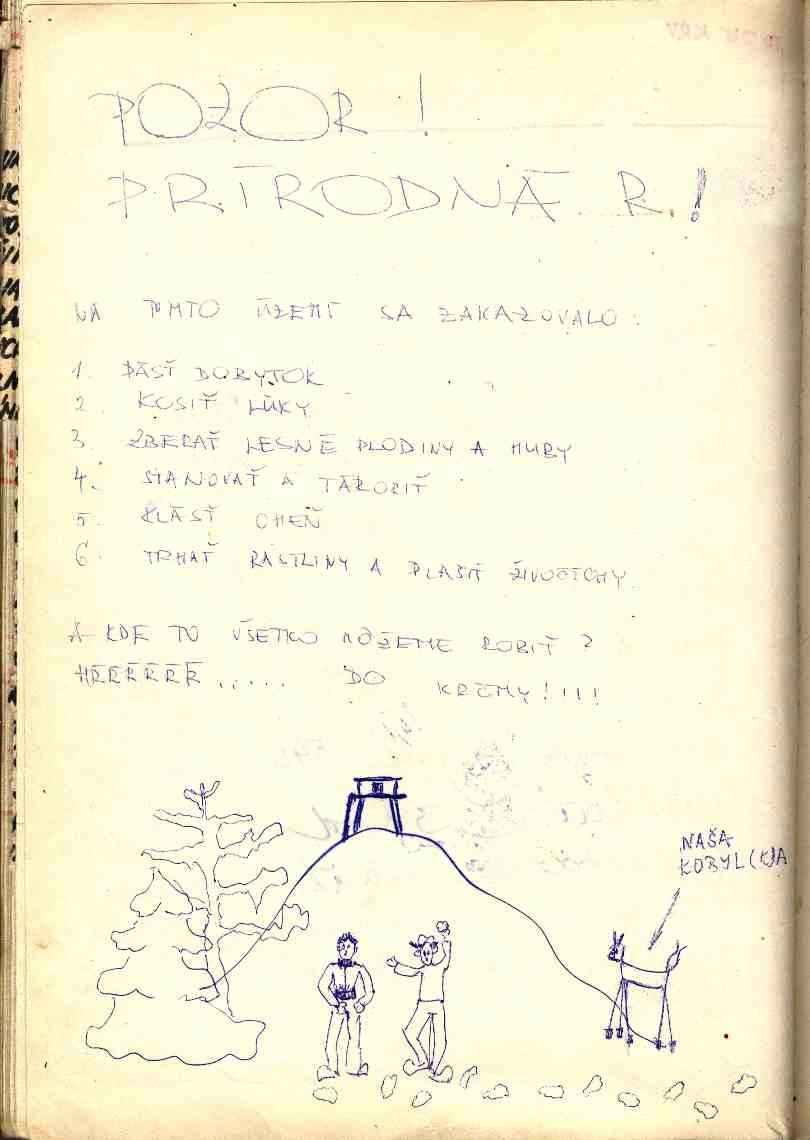 POZOR !
PRÍRODNÁ R.!
NA TOMTO ÚZEMÍ SA ZAKAZOVALO:
1. PÁSŤ DOBYTOK
2. KOSIŤ LÚKY
3. ZBERAŤ LESNÉ PLODINY A HUBY
4. STANOVAŤ A TÁBORIŤ
5. KLÁSŤ OHEŇ
6. TRHAŤ RASTLINY A PLAŠIŤ ŽIVOČÍCHY.
A KDE TO VŠETKO MÔŽEME ROBIŤ ?
HŔŔŔŔŔ...... DO KRČMY!!!!
NAŠA
KOBYL(K)A